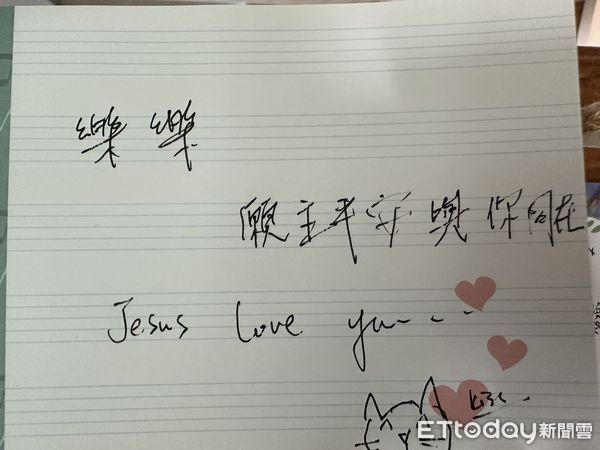 樂樂
願主平安與你同在
Jesus love you...
kiss
ETtoday新聞雲